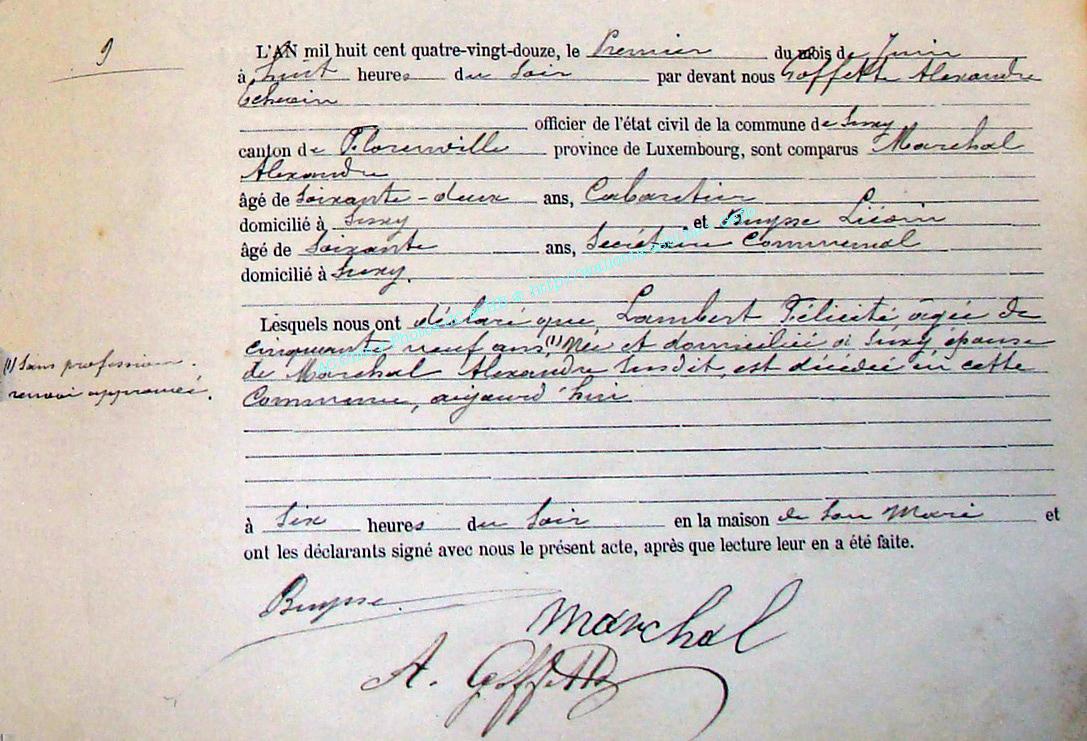 9
L'AN mil huit cent quatre-vingt-douze, le Premier du mois de Juin
à huit heures du Soir par devant nous Goffette Alexandre
Echevin
officier de l'état civil de la commune de Suxy
canton de Florenville province de Luxembourg, sont comparus Marchal
Alexandre
âgé de Soixante-deux ans, Cabaretier
domicilié à Suxy et Buysse
âgé de Soixante ans, Secrétaire Communal
domicilié à Suxy.
Lesquels nous ont déclaré que, Lambert Félicité âgée de
cinquante neuf ans, (1) Née et domiciliée à Suxy épouse
de Marchal Alexandre susdit, est décédée en cette
Commune, aujourd'hui
(1) Sans profession.
renvoi approuvé.
à Six heures du Soir en la maison de Son Mari et
ont les déclarants signé avec nous le présent acte, après que lecture leur en a été faite.
Buysse
Marchal
A. Goffette